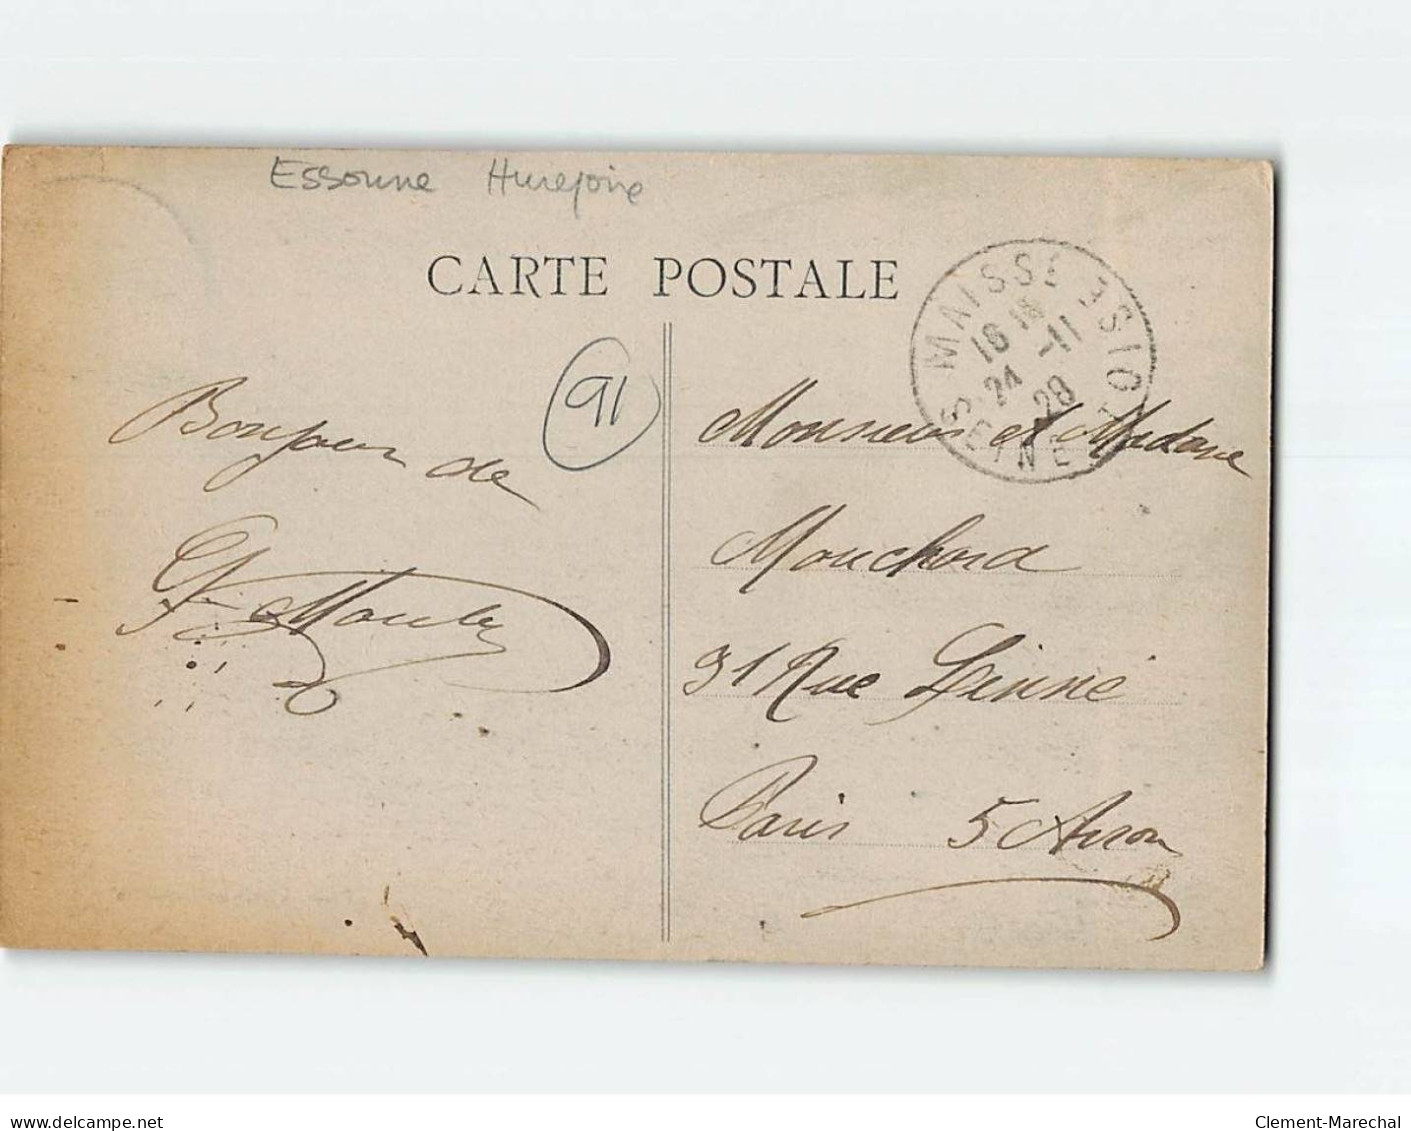 Essonne Hurepoix
CARTE POSTALE
MAISSE
SEINE ET OISE
-11
24
28
91
Bonjour de
Monsieur et Madame
Mouchard
31 Rue Linné
Paris 5 Arron
www.delcampe.net
Clement-Marechal